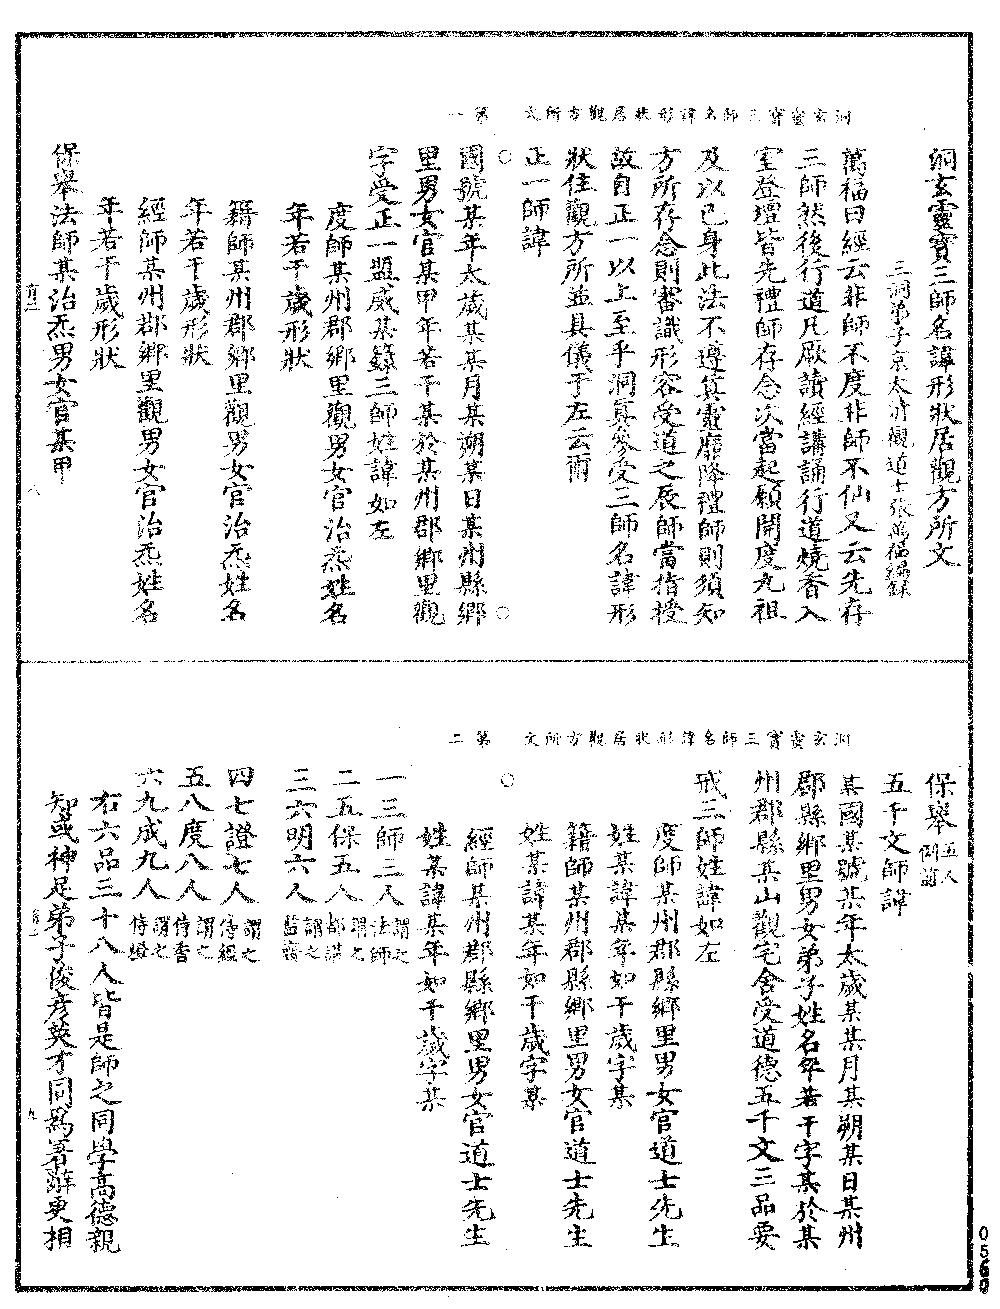 洞玄靈寶三師名諱形狀居觀方所文　第一
洞玄靈寶三師名諱形狀居觀方所文
三洞弟子京太清觀道士張萬福編錄
萬福曰經云非師不度非師不仙又云先存
三師然後行道凡厥讀經講誦行道燒香入
室登壇皆先禮師存念次當起願開度九祖
及以己身此法不遵真靈靡降禮師則須知
方所存念則審識形容受道之辰師當指授
故自正一以上至乎洞真參受三師名諱形
狀住觀方所並具儀于左云爾
正一師諱
國號某年太歲某某月某朔某日某州縣鄉
里男女官某甲年若干某於某州郡鄉里觀
字受正一盟威某籙三師姓諱如左
度師某州郡鄉里觀男女官治炁姓名
年若干歲形狀
籍師某州郡鄉里觀男女官治炁姓名
年若干歲形狀
經師某州郡鄉里觀男女官治炁姓名
年若干歲形狀
保舉法師某治炁男女官某甲
八
洞玄靈寶三師名諱形狀居觀方所文　第二
保舉五人例前
五千文師諱
某國某號某年太歲某某月某朔某日某州
郡縣鄉里男女弟子姓名年若干字某於某
州郡縣某山觀宅舍受道德五千文三品要
戒三師姓諱如左
度師某州郡縣鄉里男女官道士先生
姓某諱某年如干歲字某
籍師某州郡縣鄉里男女官道士先生
姓某諱某年如干歲字某
經師某州郡縣鄉里男女官道士先生
姓某諱某年如干歲字某
一三師三人謂之法師
二五保五人謂之都講
三六明六人謂之監齋
四七證七人謂之侍經
五八度八人謂之侍香
六九成九人謂之侍燈
右六品三十八人皆是師之同學高德親
知或神足弟子俊彥英才同為署辭更相
九